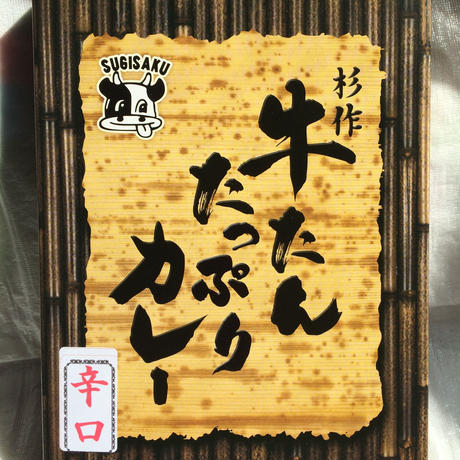 SUGISAKU
杉作
牛たん
たっぷり
カレー
辛口